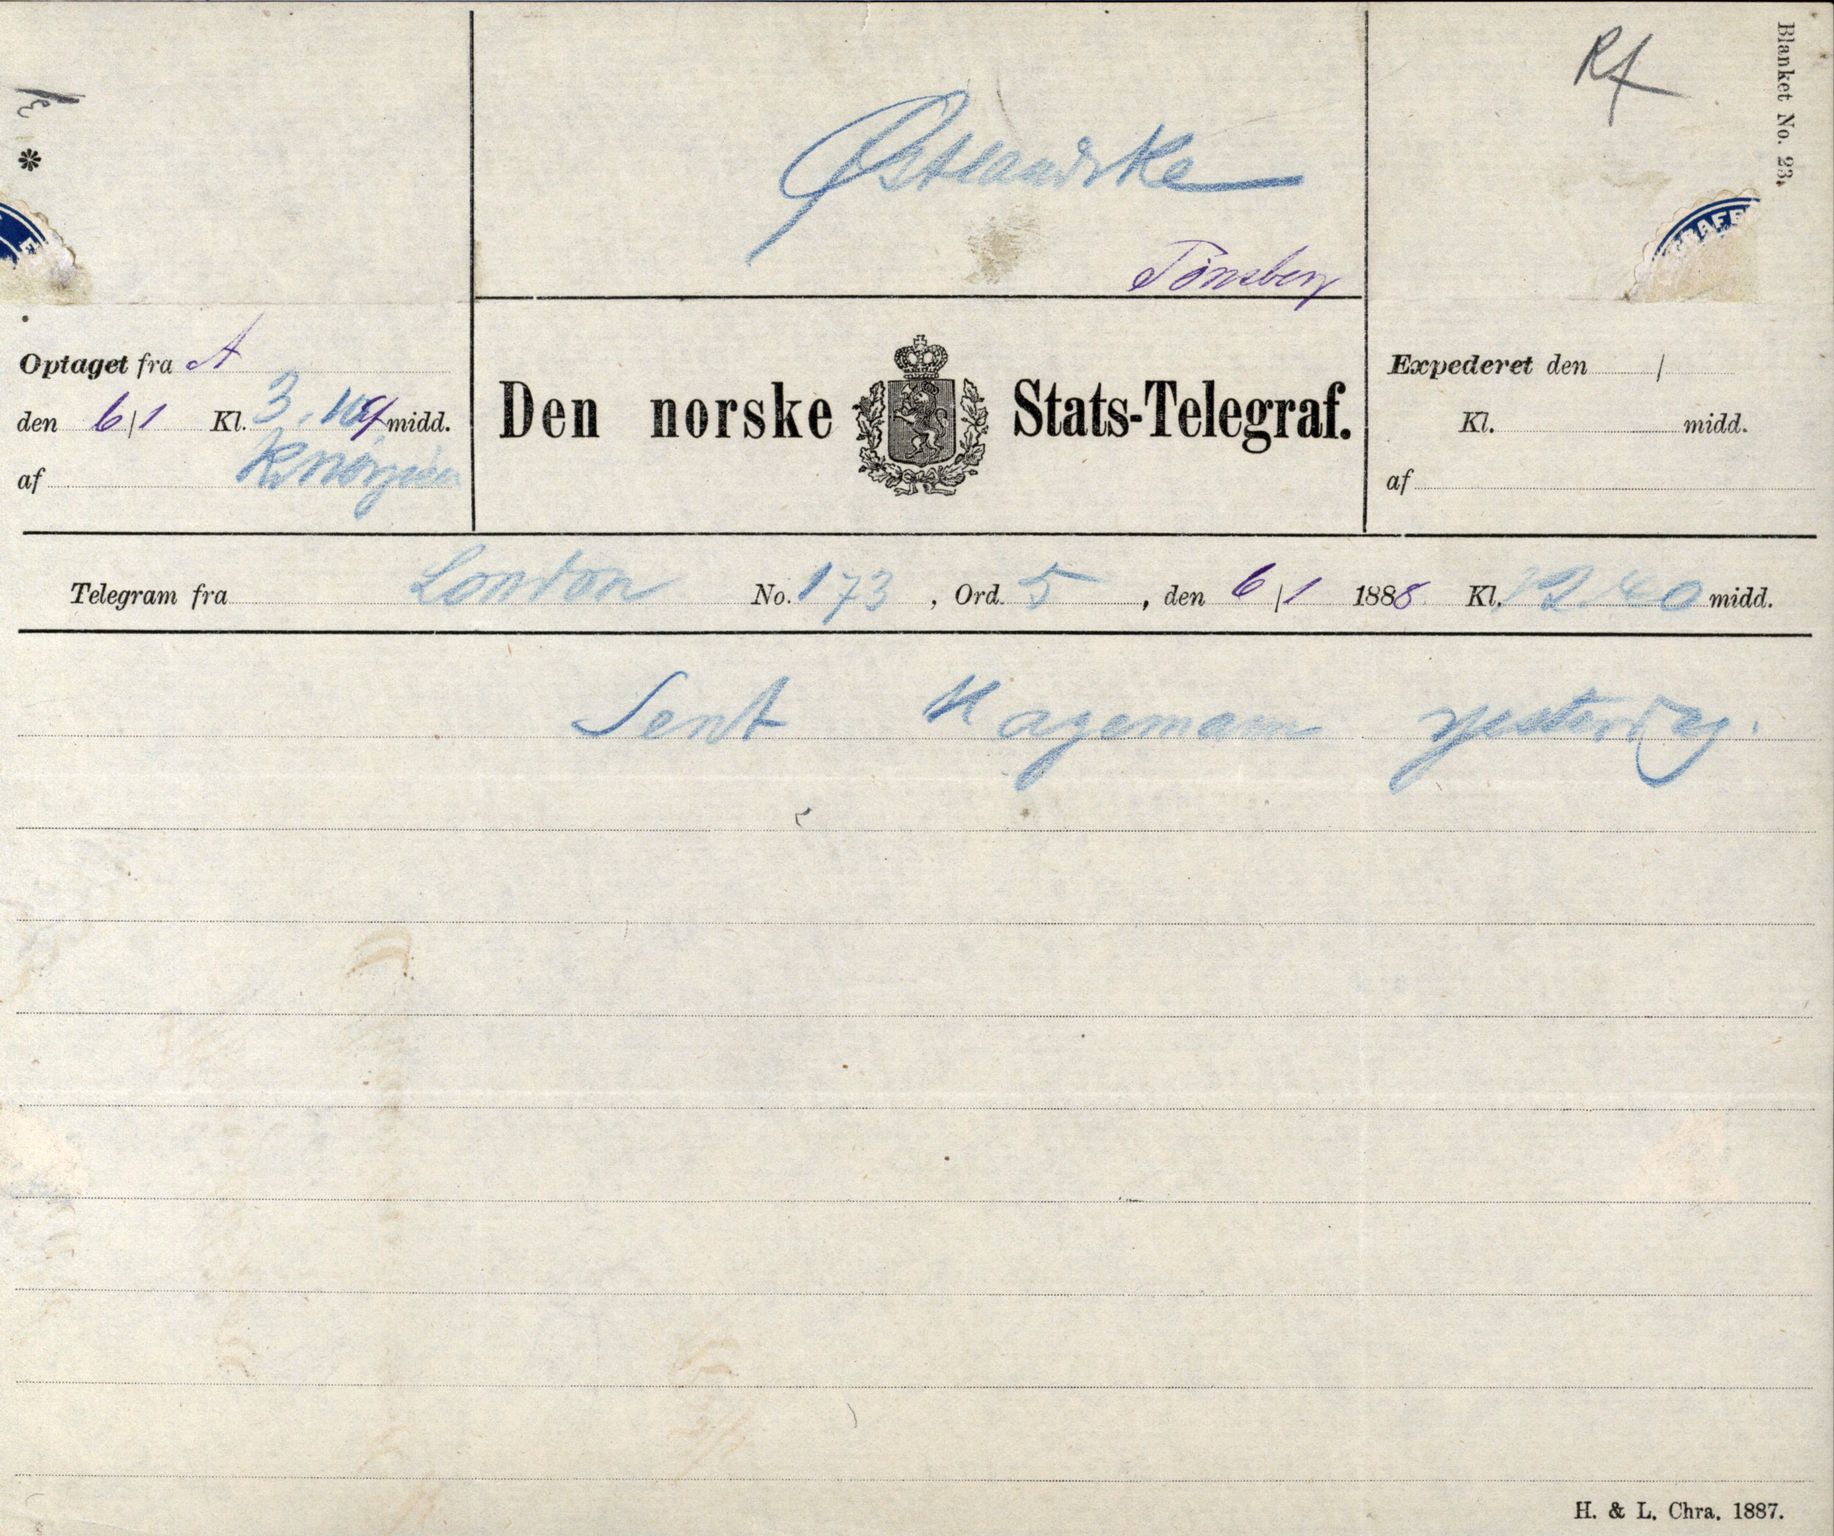 Blanket No. 23.
Rf
Østlandske
Tönsberg
Optaget fra A
den 6/1 Kl. 3.10 Ef midd.
af
Den norske Stats-Telegraf.
Expederet den /
Kl. midd.
af
Telegram fra London No. 173, Ord. 5, den 6/1 1888 Kl. 12.40 midd.
Sent Hagemann yesterday.
H. & L. Chra. 1887.